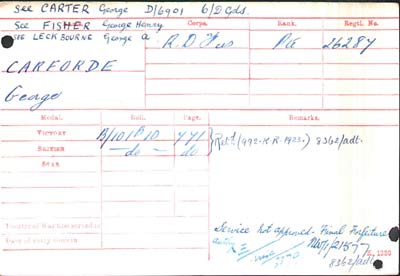 See CARTER George D/6901 6/D Gds.
See FISHER George Henry
SEE LECKBOURNE George A
Corps. Rank. Regtl. No.
R.D.Fus Pte 26287
CARFORDE
George
Medal. Roll. Page. Remarks.
VICTORY B/101 B10 441
BRITISH —do— do
STAR
} Retd (992-K.R-1923.) 8362/adt.
Service not approved. Final Forfeiture
Theatre of War first served in
Date of entry therein
K. 1380
8362/adt